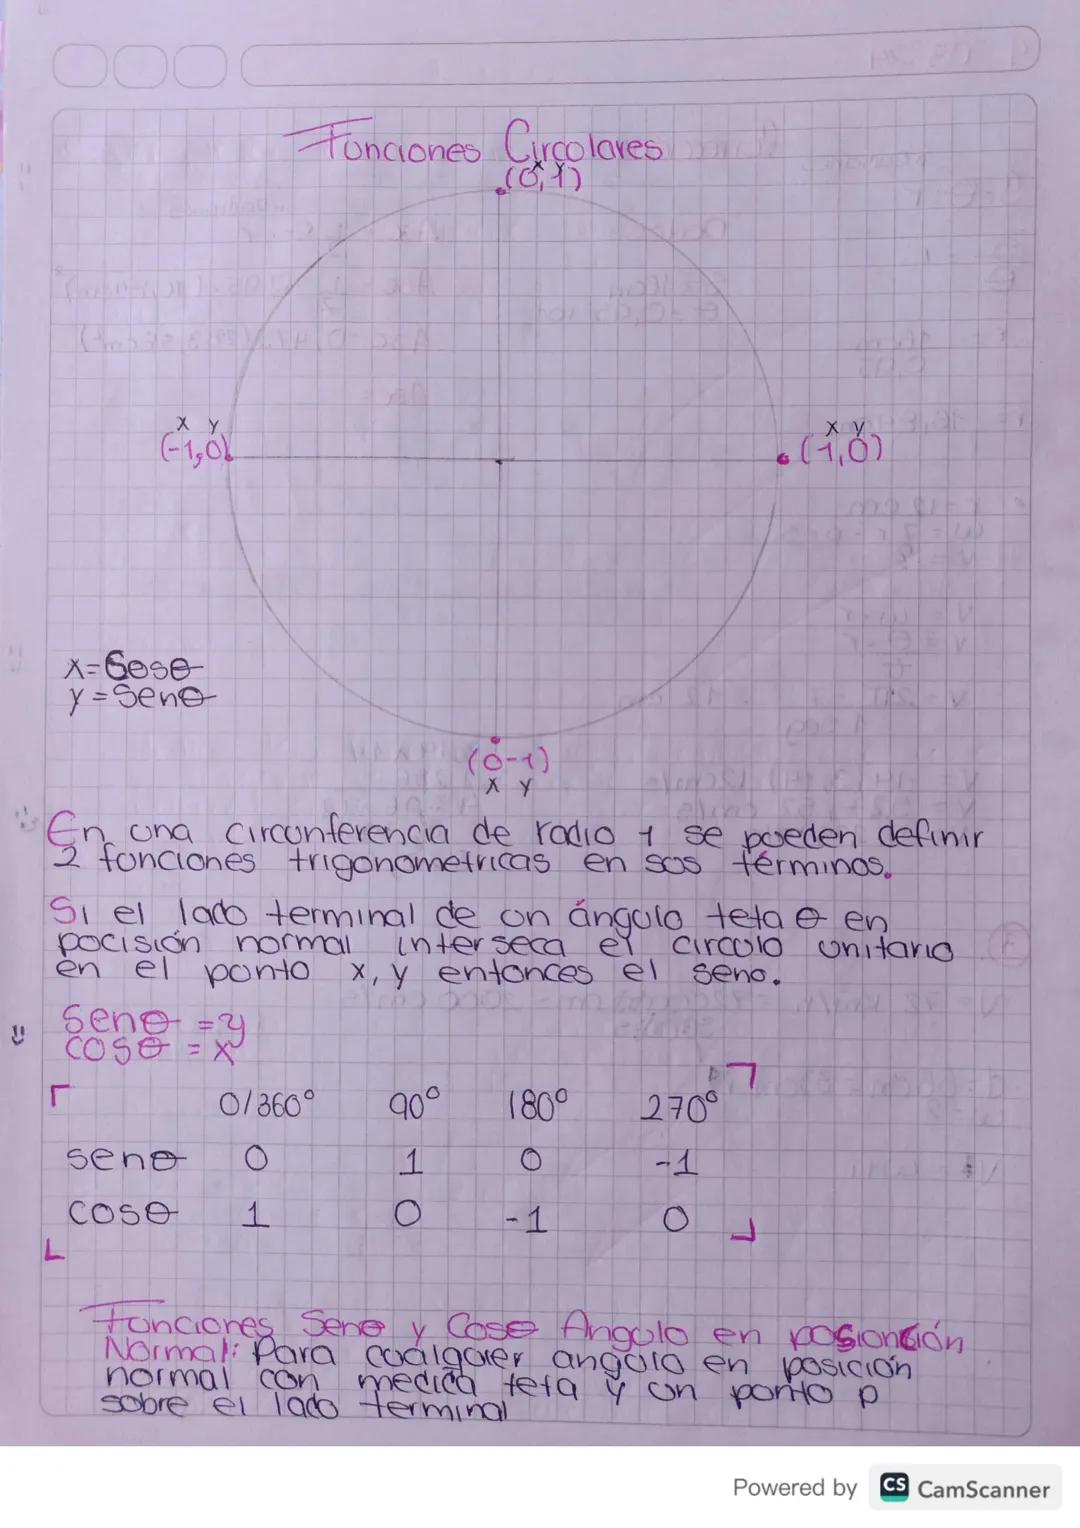 Funciones Circulares
x y
(0,1)
x y
(-1,0)
x y
(1,0)
x=Cosθ
y=Senθ
(0-1)
x y
En una circunferencia de radio 1 se pueden definir
2 funciones trigonometricas en sus términos.
Si el lado terminal de un ángulo teta θ en
pocisión normal interseca el circulo unitario
en el punto x, y entonces el seno.
Senθ = y
Cosθ = x
0/360° 90° 180° 270°
senθ 0 1 0 -1
cosθ 1 0 -1 0
Funciones Senθ y Cosθ Angulo en posionción
Normal: Para cualquier angulo en posición
normal con medica teta y un punto p
sobre el lado terminal
Powered by CS CamScanner